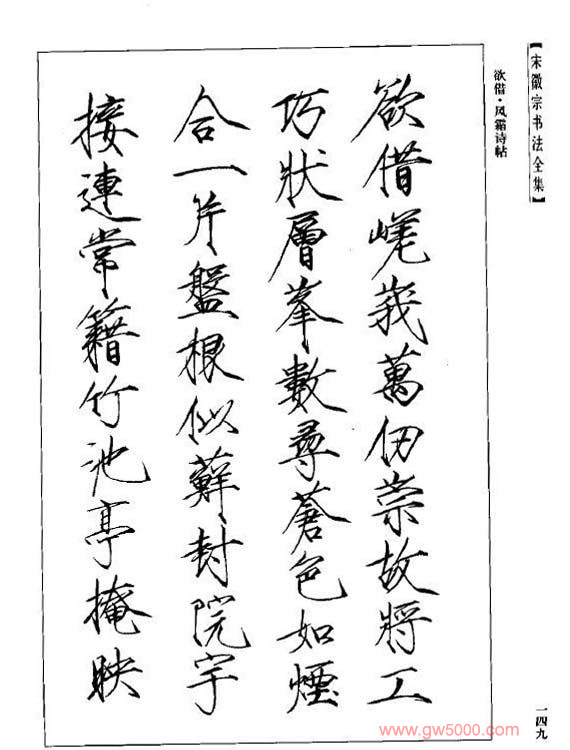 【宋徽宗书法全集】
欲借·风霜诗帖
欲借嵯峩萬仞崇故將工
巧狀層峯數尋蒼色如煙
合一片盤根似蘚封院宇
接連常籍竹池亭掩映
一四九
www.gw5000.com